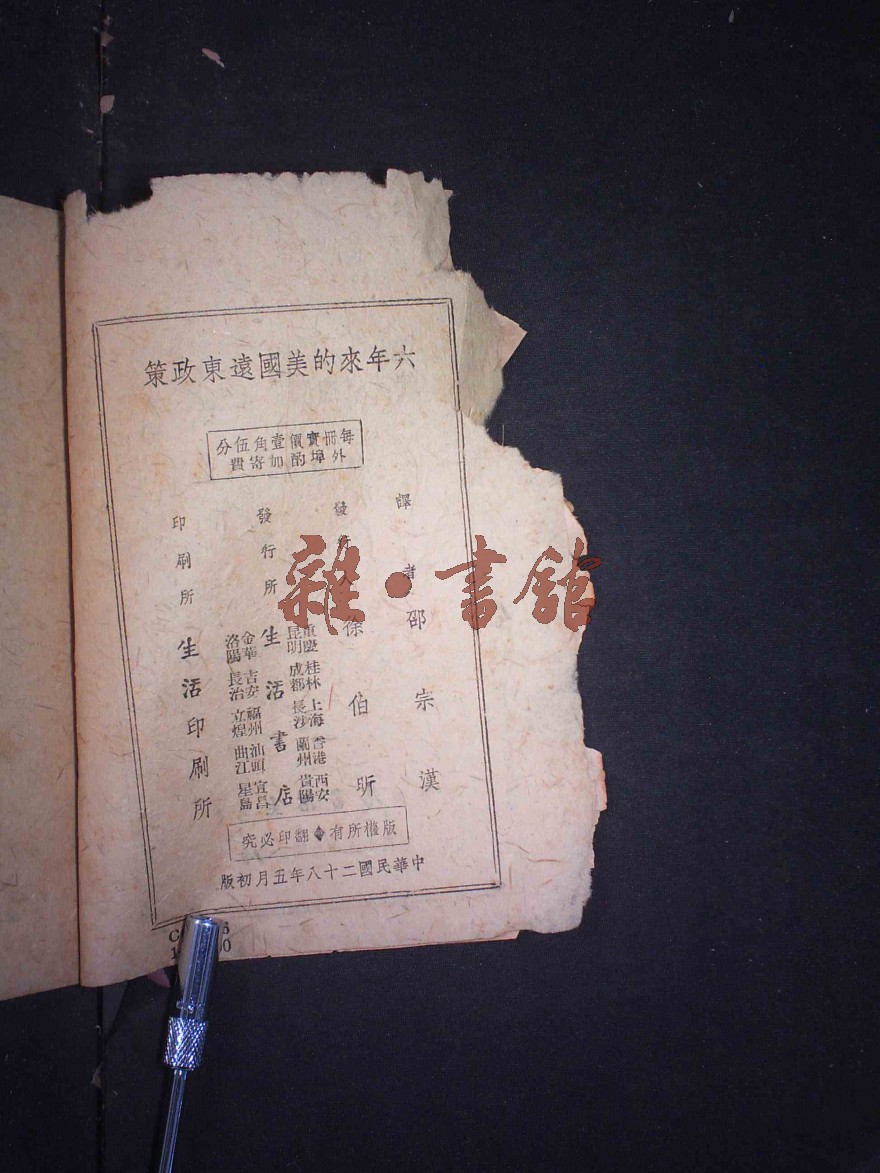 六年來的美國遠東政策
每冊實價壹角伍分
外埠酌加寄費
譯者 邵宗漢
發行人 徐伯昕
發行所 生活書店
重慶 桂林 上海 香港 西安
昆明 成都 長沙 蘭州 貴陽
金華 吉安 福州 汕頭 宜昌
洛陽 長治 立煌 曲江 星島
印刷所 生活印刷所
版權所有 翻印必究
中華民國二十八年五月初版
雜·書館